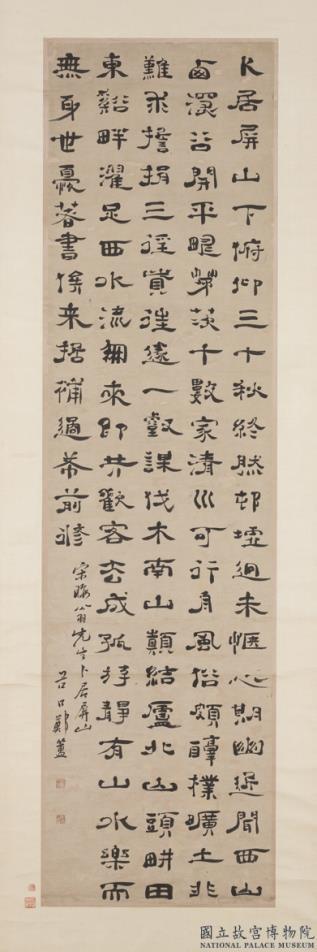 卜居屏山下俯仰三十秋終然邨墟迥未愜心期幽近聞西山
西深谷開平疇茅茨十數家清川可行舟風俗頗醇樸曠土非
難求誓捐三徑資往遂一壑謀伐木南山顛結廬北山頭耕田
東谿畔濯足西水流朋來即共歡客去成孤遊靜有山水樂而
無身世憂著書俟來哲補過希前脩
宋晦翁先生卜居屏山
谷口鄭簠
國立故宮博物院
NATIONAL PALACE MUSEUM